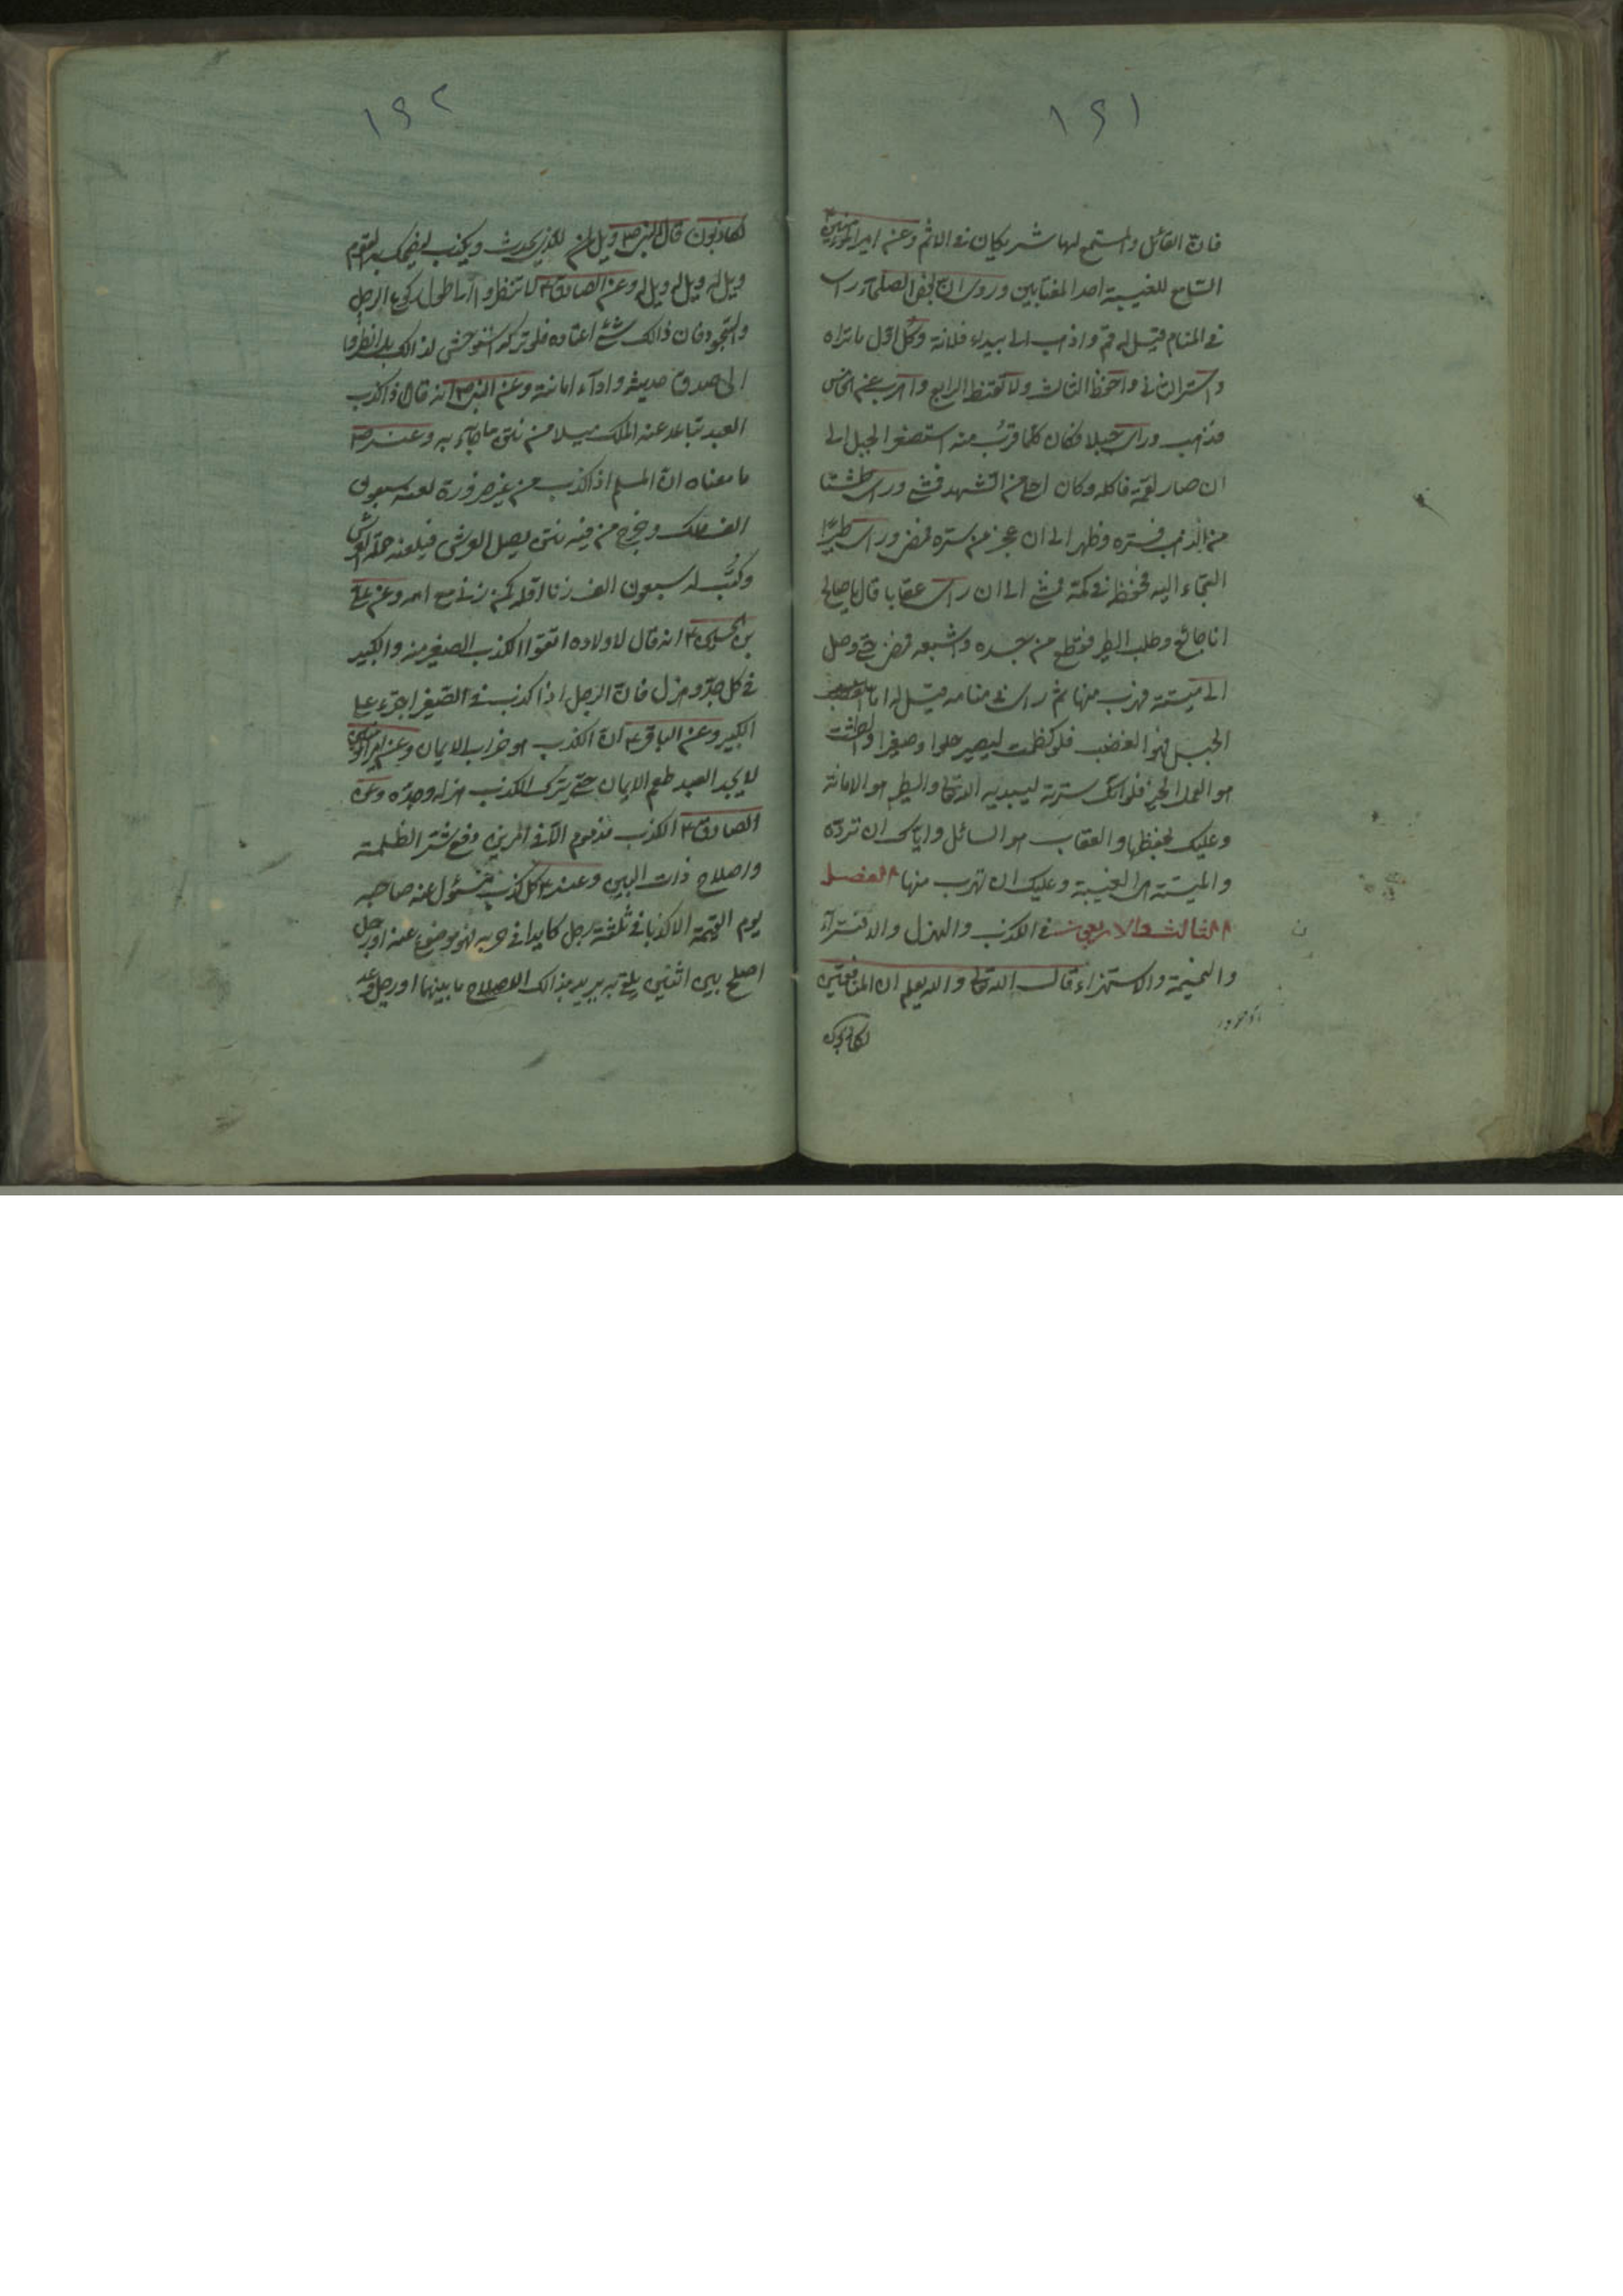 ١٤١
فان القائل والمستمع لها شريكان في الاثم وعن امير المؤمنين
السامع للغيبة احد المغتابين وروى ان بعض الصلحاء راى
في المنام قيل له قم واذهب الى بيداء فلانة وكل اول ما تراه
واستر الثانى واحفظ الثالث ولا تقنط الرابع واهرب عن الخامس
فذهب وراى جبلا فكان كلما قرب منه استصغر الجبل الى
ان صار لقمة فاكله وكان احلى من الشهد فمشى وراى طشتا
من الذهب فستره وظهر الى ان عجز من ستره فمضى وراى طيرا
التجاء اليه فحفظه في كمه فمشى الى ان راى عقابا قال يا صالح
انا جائع وطلب الطير فقطع من جسده واشبعه فمضى حتى وصل
الى ميتة فهرب منها ثم راى في منامه قيل له اما
الجبل فهو الغضب فلو كظمت ليصير حلوا وصغيرا والطشت
هو العمل الخير فلو انك سترته ليبديه الله تعالى والطير هو الامانة
وعليك بحفظها والعقاب هو السائل واياك ان تردّه
والميتة هى الغيبة وعليك ان تهرب منها الفصل
الثالث والاربعين في الكذب والهزل والافتراء
والنميمة والاستهزاء قال الله تعالى والله يعلم ان المنافقين
لكاذبون
١٤٢
لكاذبون قال النبى ص ويل لمن للذى يحدث ويكذب ليضحك به القوم
ويل له ويل له ويل له وعن الصادق ع لا تنظروا الى طول ركوع الرجل
والسجود فان ذلك شئ اعتاده فلو تركه استوحش لذلك بل انظروا
الى صدق حديثه واداء امانته وعن النبى ص انه قال اذا كذب
العبد تباعد عنه الملك ميلا من نتن ما جاء به وعنه ص
ما معناه ان المسلم اذا كذب من غير ضرورة لعنه سبعون
الف ملك وخرج من فيه نتن يصل العرش فيلعنه حملة العرش
وكتب له سبعون الف زنا اقله كمن زنى مع امه وعن على
بن الحسين ع انه قال لاولاده اتقوا الكذب الصغير منه والكبير
في كل جد وهزل فان الرجل اذا كذب في الصغير اجترء على
الكبير وعن الباقر ع ان الكذب هو خراب الايمان وعن امير المؤمنين
لا يجد العبد طعم الايمان حتى يترك الكذب هزله وجده وعن
الصادق ع الكذب مذموم الا في امرين دفع شر الظلمة
واصلاح ذات البين وعنه ع كل كذب مسئول عنه صاحبه
يوم القيمة الا كذبا في ثلثة رجل كايد في حربه فهو موضوع عنه او رجل
اصلح بين اثنين يلقى به يريد بذلك الاصلاح ما بينهما او رجل وعد